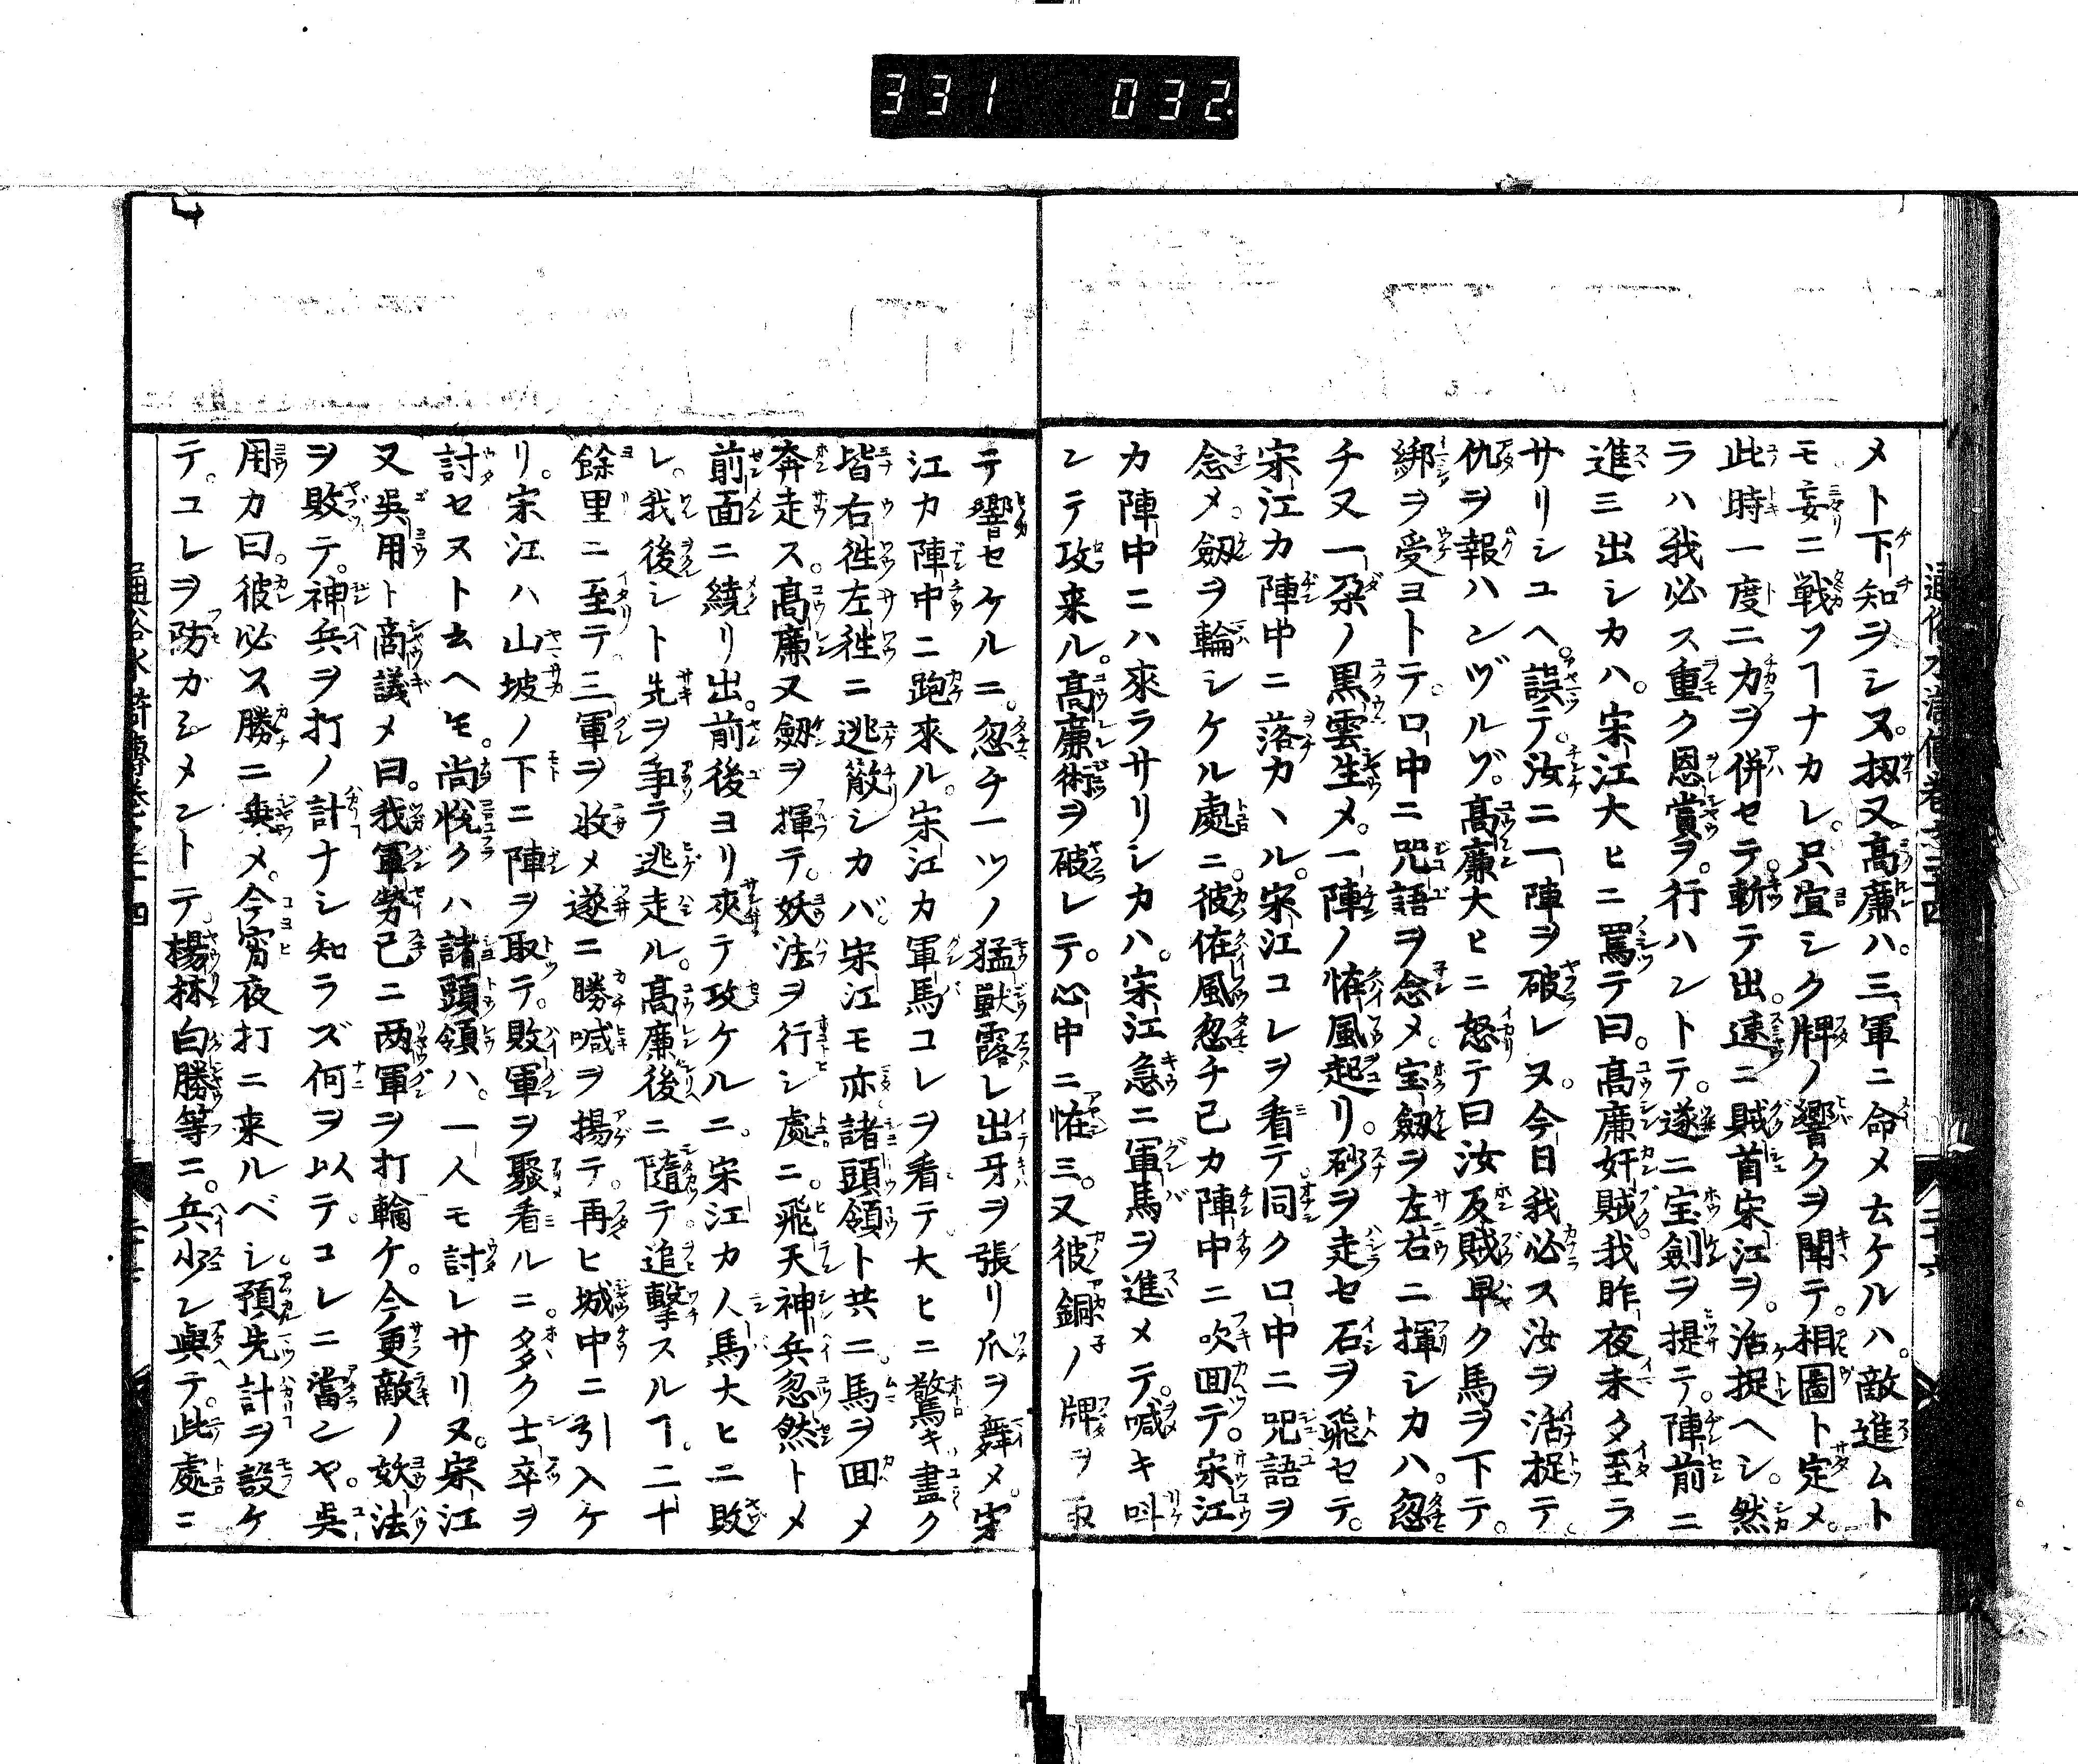 331 032
メト下知ヲシヌ。扨又高廉ハ。三軍ニ命メ云ケルハ。敵進ムト
モ妄ニ戦フヿナカレ。只宜シク牌ノ響クヲ聞テ。相圖ト定メ。
此時一度ニ力ヲ併セテ。斬テ出。速ニ賊首宋江ヲ。活捉ヘシ。然
ラハ我必ス重ク恩賞ヲ。行ハントテ。遂ニ宝劍ヲ提テ。陣前ニ
進ミ出シカハ。宋江大ヒニ罵テ曰。高廉奸賊。我昨夜未タ至ラ
サリシユヘ。誤テ。汝ニ一陣ヲ破レヌ。今日我必ス汝ヲ活捉テ。
仇ヲ報ハンヅルゾ。高廉大ヒニ怒テ曰汝反賊早ク馬ヲ下テ。
綁ヲ受ヨトテ。口中ニ咒語ヲ念メ。宝劔ヲ左右ニ揮シカハ。忽
チ又一朶ノ黒雲生メ。一陣ノ恠風起リ。砂ヲ走セ石ヲ飛セテ。
宋江カ陣中ニ落カヽル。宋江コレヲ看テ。同ク口中ニ咒語ヲ
念メ。劔ヲ輪シケル處ニ。彼恠風忽チ已カ陣中ニ吹回テ。宋江
カ陣中ニハ來ラサリシカハ。宋江急ニ軍馬ヲ進メテ。喊キ呌
ンテ攻来ル。高廉術ヲ破レテ。心中ニ恠ミ。又彼銅ノ牌ヲ取
テ響セケルニ。忽チ一ツノ猛獣露レ出牙ヲ張リ爪ヲ舞メ。宋
江カ陣中ニ跑來ル。宋江カ軍馬コレヲ看テ大ヒニ驚キ盡ク
皆右徃左徃ニ逃散シカバ。宋江モ亦諸頭領ト共ニ。馬ヲ回メ
奔走ス。高廉又劔ヲ揮テ。妖法ヲ行シ處ニ。飛天神兵忽然トメ
前面ニ繞リ出。前後ヨリ夾テ攻ケルニ。宋江カ人馬大ヒニ敗
レ。我後シト先ヲ爭テ逃走ル。高廉後ニ隨テ。追撃スルヿ。二十
餘里ニ至テ。三軍ヲ收メ遂ニ勝喊ヲ揚テ。再ヒ城中ニ引入ケ
リ。宋江ハ山坡ノ下ニ陣ヲ取テ。敗軍ヲ聚看ルニ。多ク士卒ヲ
討セヌト云ヘ𪜈。尚悅クハ諸頭領ハ。一人モ討レサリヌ。宋江
又吳用ト商議メ曰。我軍勢已ニ两軍ヲ打輪ケ。今更敵ノ妖法
ヲ敗テ。神兵ヲ打ノ計ナシ知ラズ何ヲ以テ。コレニ當ンヤ。吳
用カ曰。彼必ス勝ニ乗メ。今宵夜打ニ来ルベシ。預先計ヲ設ケ
テ。コレヲ防ガシメントテ。楊林白勝等ニ。兵少シ與テ。此處ニ